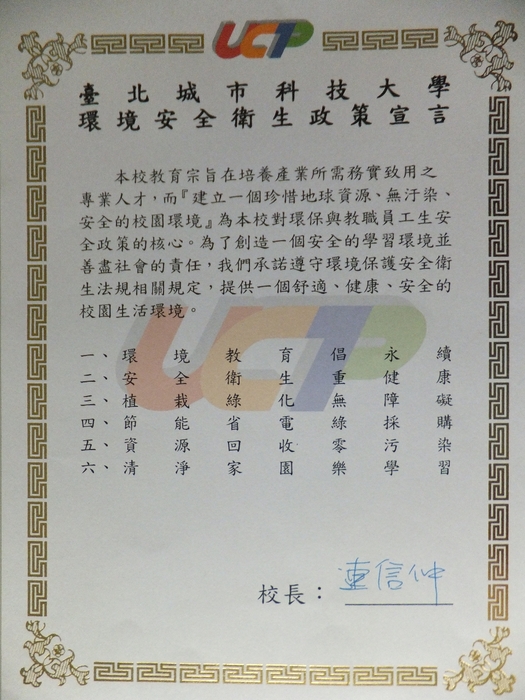 UCTP
臺北城市科技大學
環境安全衛生政策宣言
本校教育宗旨在培養產業所需務實致用之
專業人才，而『建立一個珍惜地球資源、無汙染、
安全的校園環境』為本校對環保與教職員工生安
全政策的核心。為了創造一個安全的學習環境並
善盡社會的責任，我們承諾遵守環境保護安全衛
生法規相關規定，提供一個舒適、健康、安全的
校園生活環境。
一、環境教育倡永續
二、安全衛生重健康
三、植栽綠化無障礙
四、節能省電綠採購
五、資源回收零污染
六、清淨家園樂學習
校長：連信仲